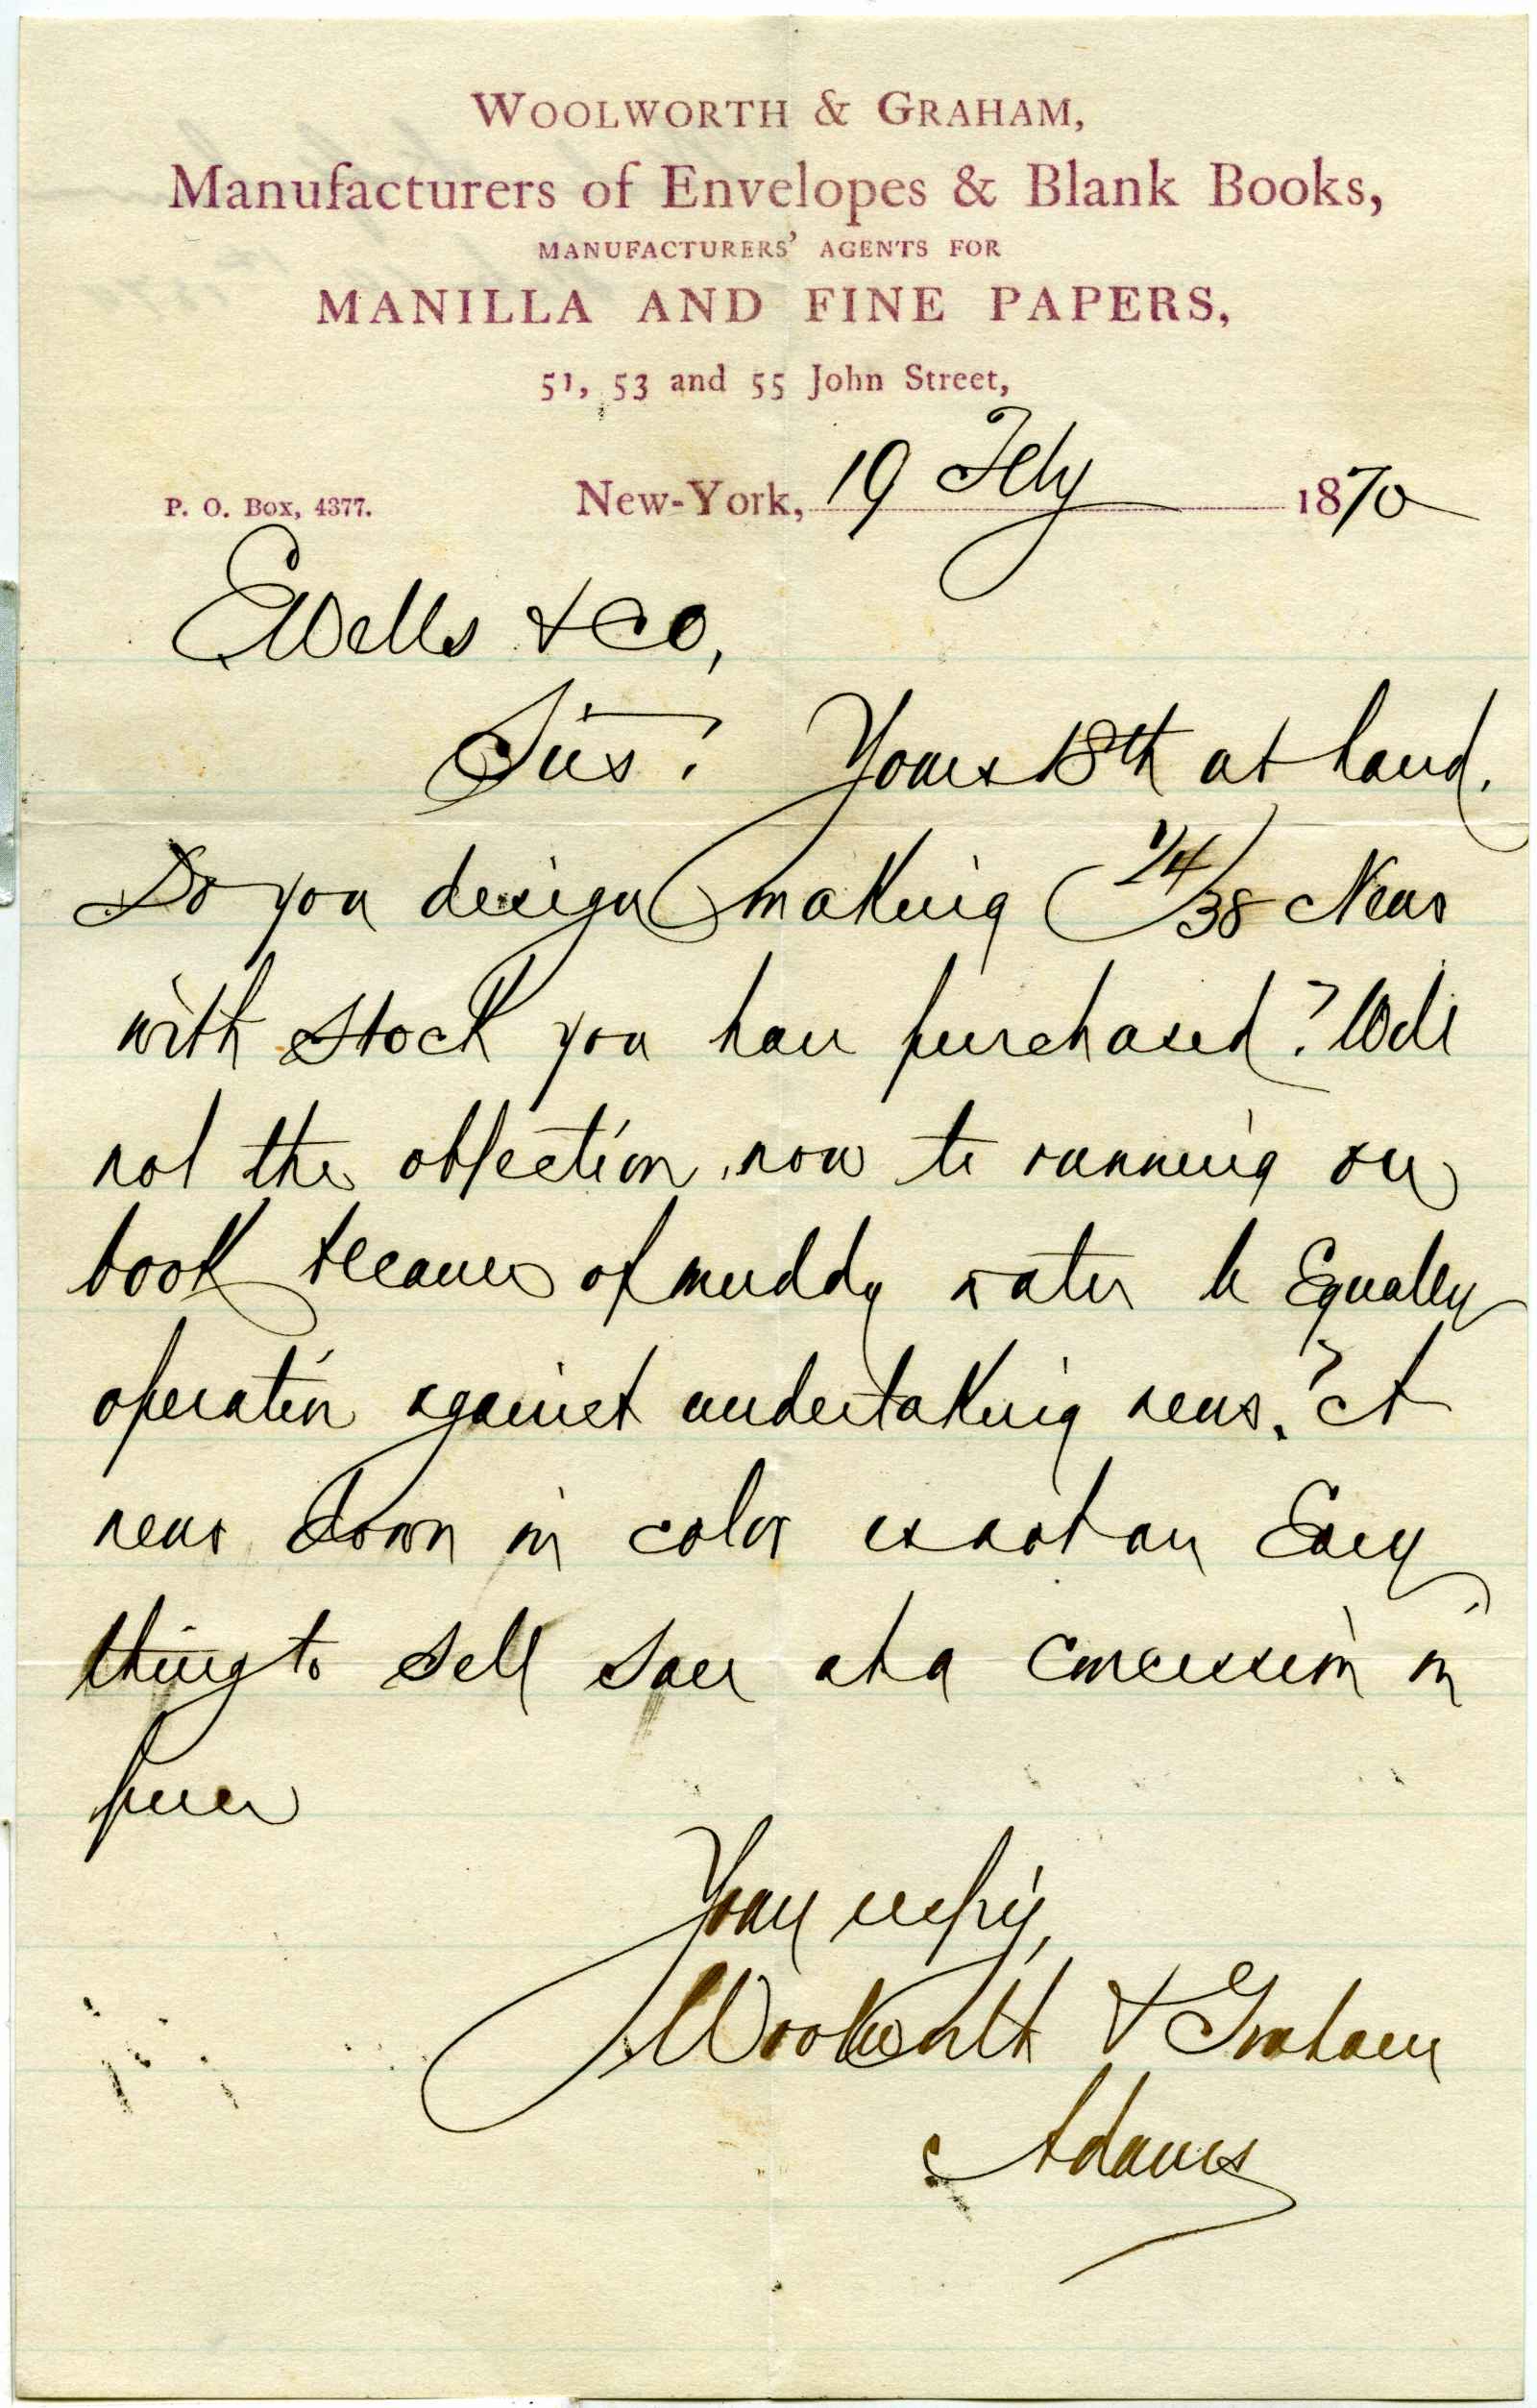 WOOLWORTH & GRAHAM,
Manufacturers of Envelopes & Blank Books,
MANUFACTURERS' AGENTS FOR
MANILLA AND FINE PAPERS,
51, 53 and 55 John Street,
P. O. Box, 4377. New-York, 19 Feby 1870
E Wells & Co,
Sirs: Yours 18th at hand.
Do you design making 24/38 News
with stock you have purchased? Will
not the objection now to running on
book because of muddy water be Equally
operative against undertaking news? A
news down in color is not an Easy
thing to sell save at a concession in
price
Yours
Woolworth & Graham
Adams